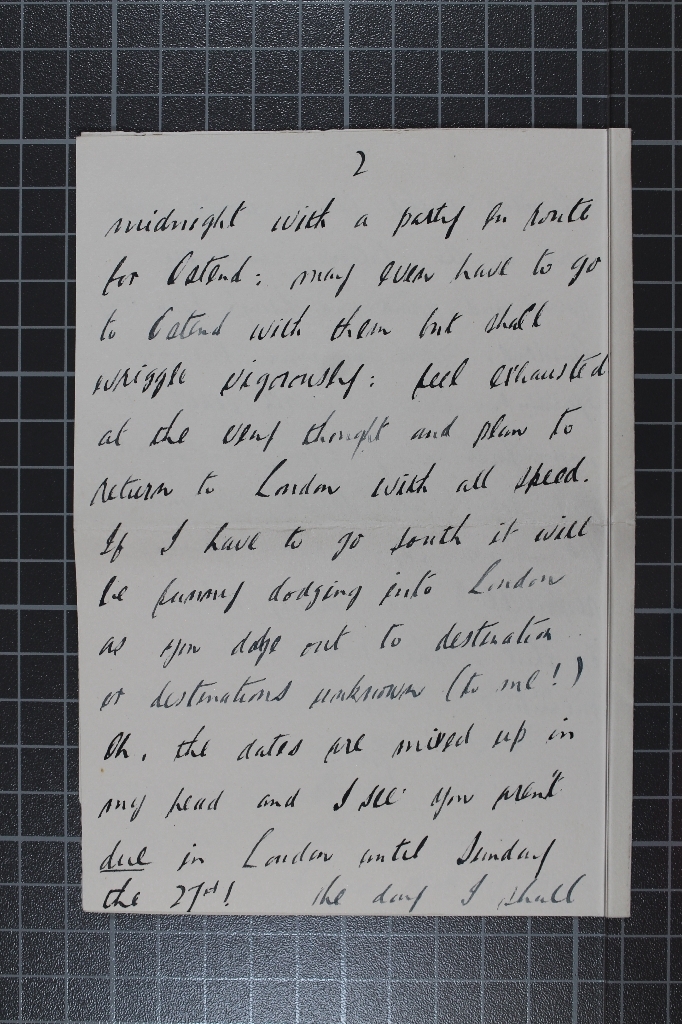 2
midnight with a party en route
for Ostend; may even have to go
to Ostend with them but shall
wriggle vigorously: feel exhausted
at the very thought and plan to
return to London with all speed.
If I have to go south it will
be funny dodging into London
as you dodge out to destination
or destinations unknown (to me!)
Oh, the dates are mixed up in
my head and I see you aren't
due in London until Sunday
the 27st! the day I shall